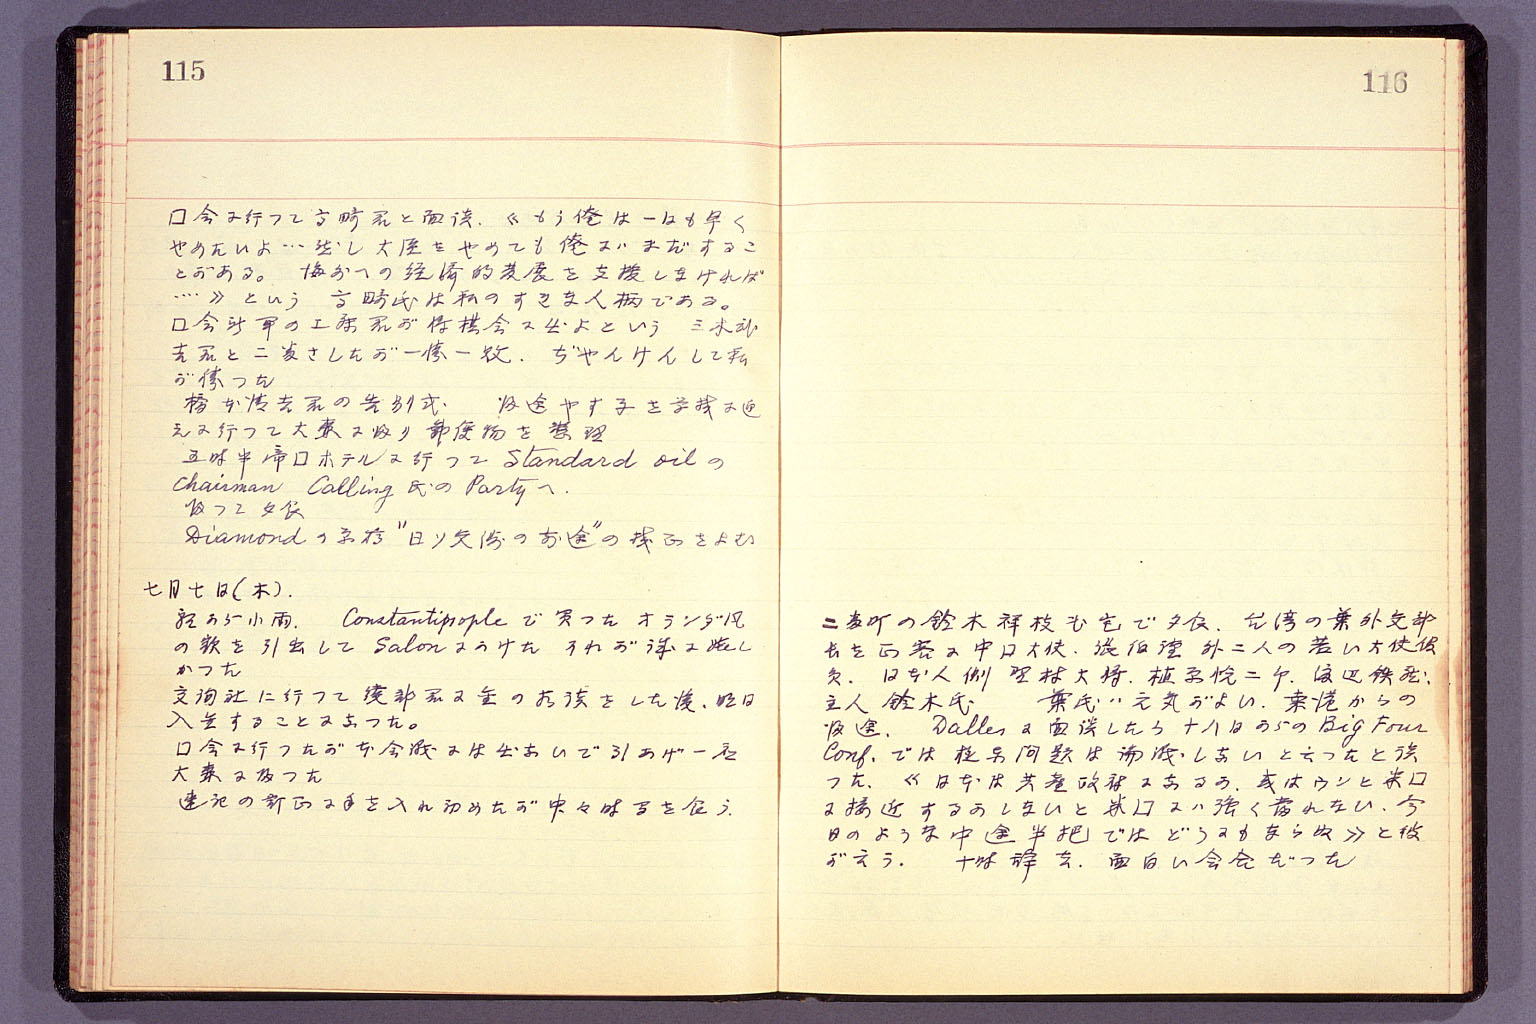 115
口会に行って高碕君と面談.《もう俺は一日も早く
やめたいよ…然し大臣をやめても俺にはまだするこ
とがある。海外への経済的発展を支援しなければ
…》という 高碕氏は私のすきな人柄である。
口会対軍の工藤君が将棋会に出よという 三木武
吉君と二番さしたが一勝一敗. ぢやんけんして私
が勝つた
橋本清吉君の告別式. 帰途やす子を学校に迎
えに行つて大森に帰り郵便物を整理
五時半帝口ホテルに行つて Standard oil の
Chairman Calling 氏の Party へ.
帰つて夕食
Diamond の原稿"日ソ交渉の前途"の校正をよむ
七月七日(木).
朝から小雨. Constantipople で買つたオランダ風
の額を引出して Salon にかけた それが誠に嬉し
かつた
交詢社に行つて渡部君に金の相談をした後、明日
入金することになつた。
口会に行つたが本会議には出ないで引あげ一応
大森に帰つた
速記の新正に手を入れ初めたが中々時間を食う.
116
二番町の鈴木祥枝氏宅で夕食. 台湾の葉外交部
長を正客に中口大使. 張伯謹 外二人の若い大使館
員. 日本人側 野村大将. 植原悦二郎. 渡辺銕蔵.
主人 鈴木氏 葉氏は元気がよい. 桑港からの
帰途. Dalles に面談したら十八日からの Big Four
Conf. では極東問題は論議しないと云つたと語
つた.《日本は共産政府になるか. 或はウンと米口
に接近するかしないと米口には強く當れない. 今
日のような中途半把ではどうにもならぬ》と彼
が云う. 十時辞去. 面白い会合だつた